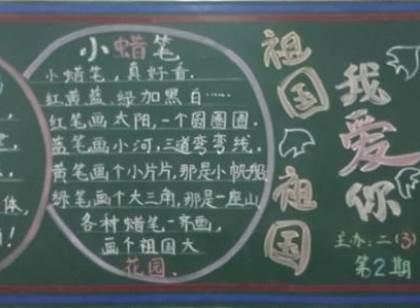 体，
！
小蜡笔
小蜡笔，真好看.
红黄蓝、绿加黑白……
红笔画太阳，一个圆圈圈.
蓝笔画小河，三道弯弯线.
黄笔画个小片片，那是小帆船
绿笔画个大三角，那是一座山
各种蜡笔一齐画，
画个祖国大
花园.
祖国
祖国
我爱你
主办：二（3）
第2期